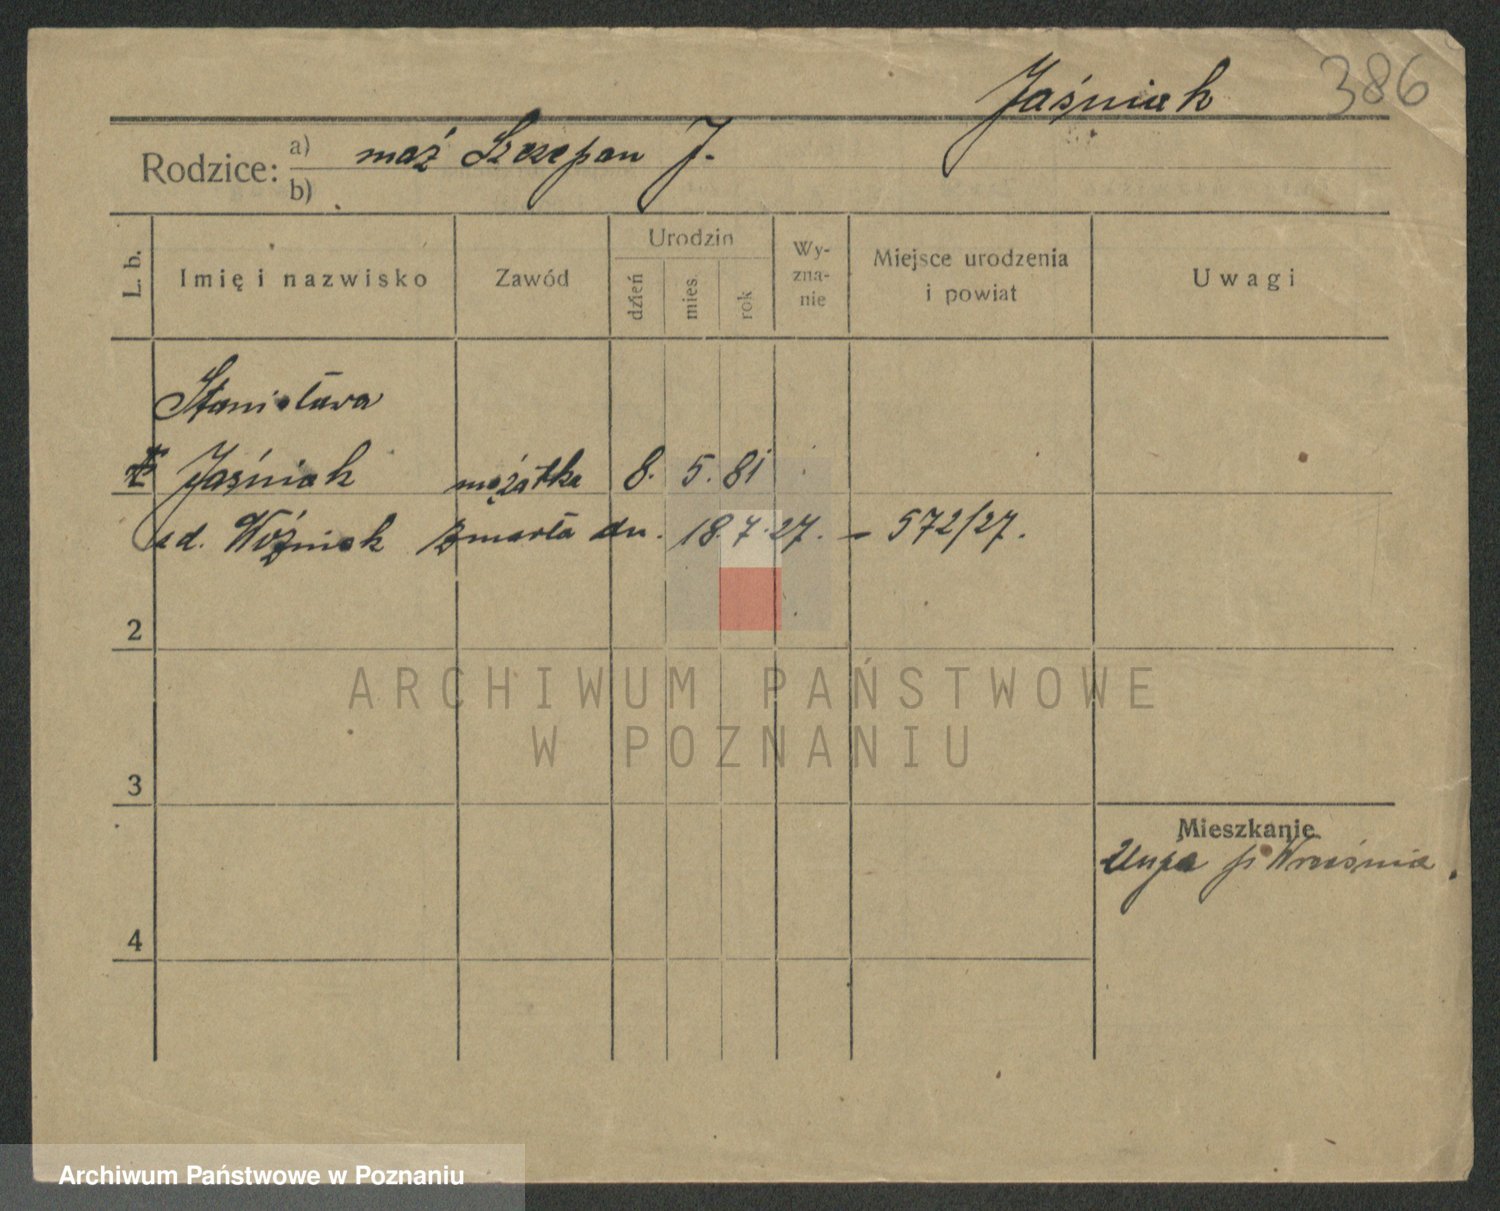 Jaśniak 386
Rodzice: a) mąż Szczepan J.
b)
L. b.
Imię i nazwisko
Zawód
Urodzin
dzień
mies.
rok
Wy-
zna-
nie
Miejsce urodzenia
i powiat
Uwagi
Stanisława
Jaśniak mężatka 8. 5. 81
ud. Woźniak zmarła dn. 18.7.27. – 572/27.
2
ARCHIWUM PAŃSTWOWE
W POZNANIU
3
Mieszkanie
p. Września.
4
Archiwum Państwowe w Poznaniu